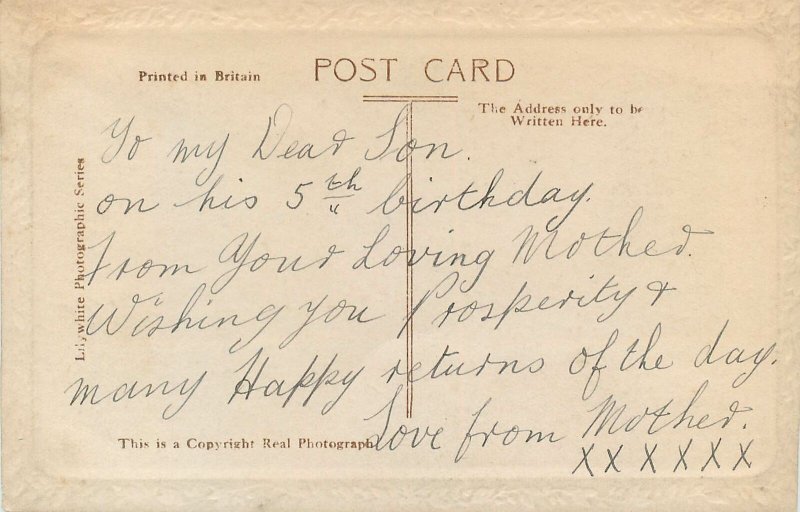 Printed in Britain
POST CARD
The Address only to be
Written Here.
Lilywhite Photographic Series
To my Dear Son.
on his 5th birthday.
From Your Loving Mother.
Wishing you Prosperity &
many Happy returns of the day.
Love from Mother.
X X X X X X
This is a Copyright Real Photograph